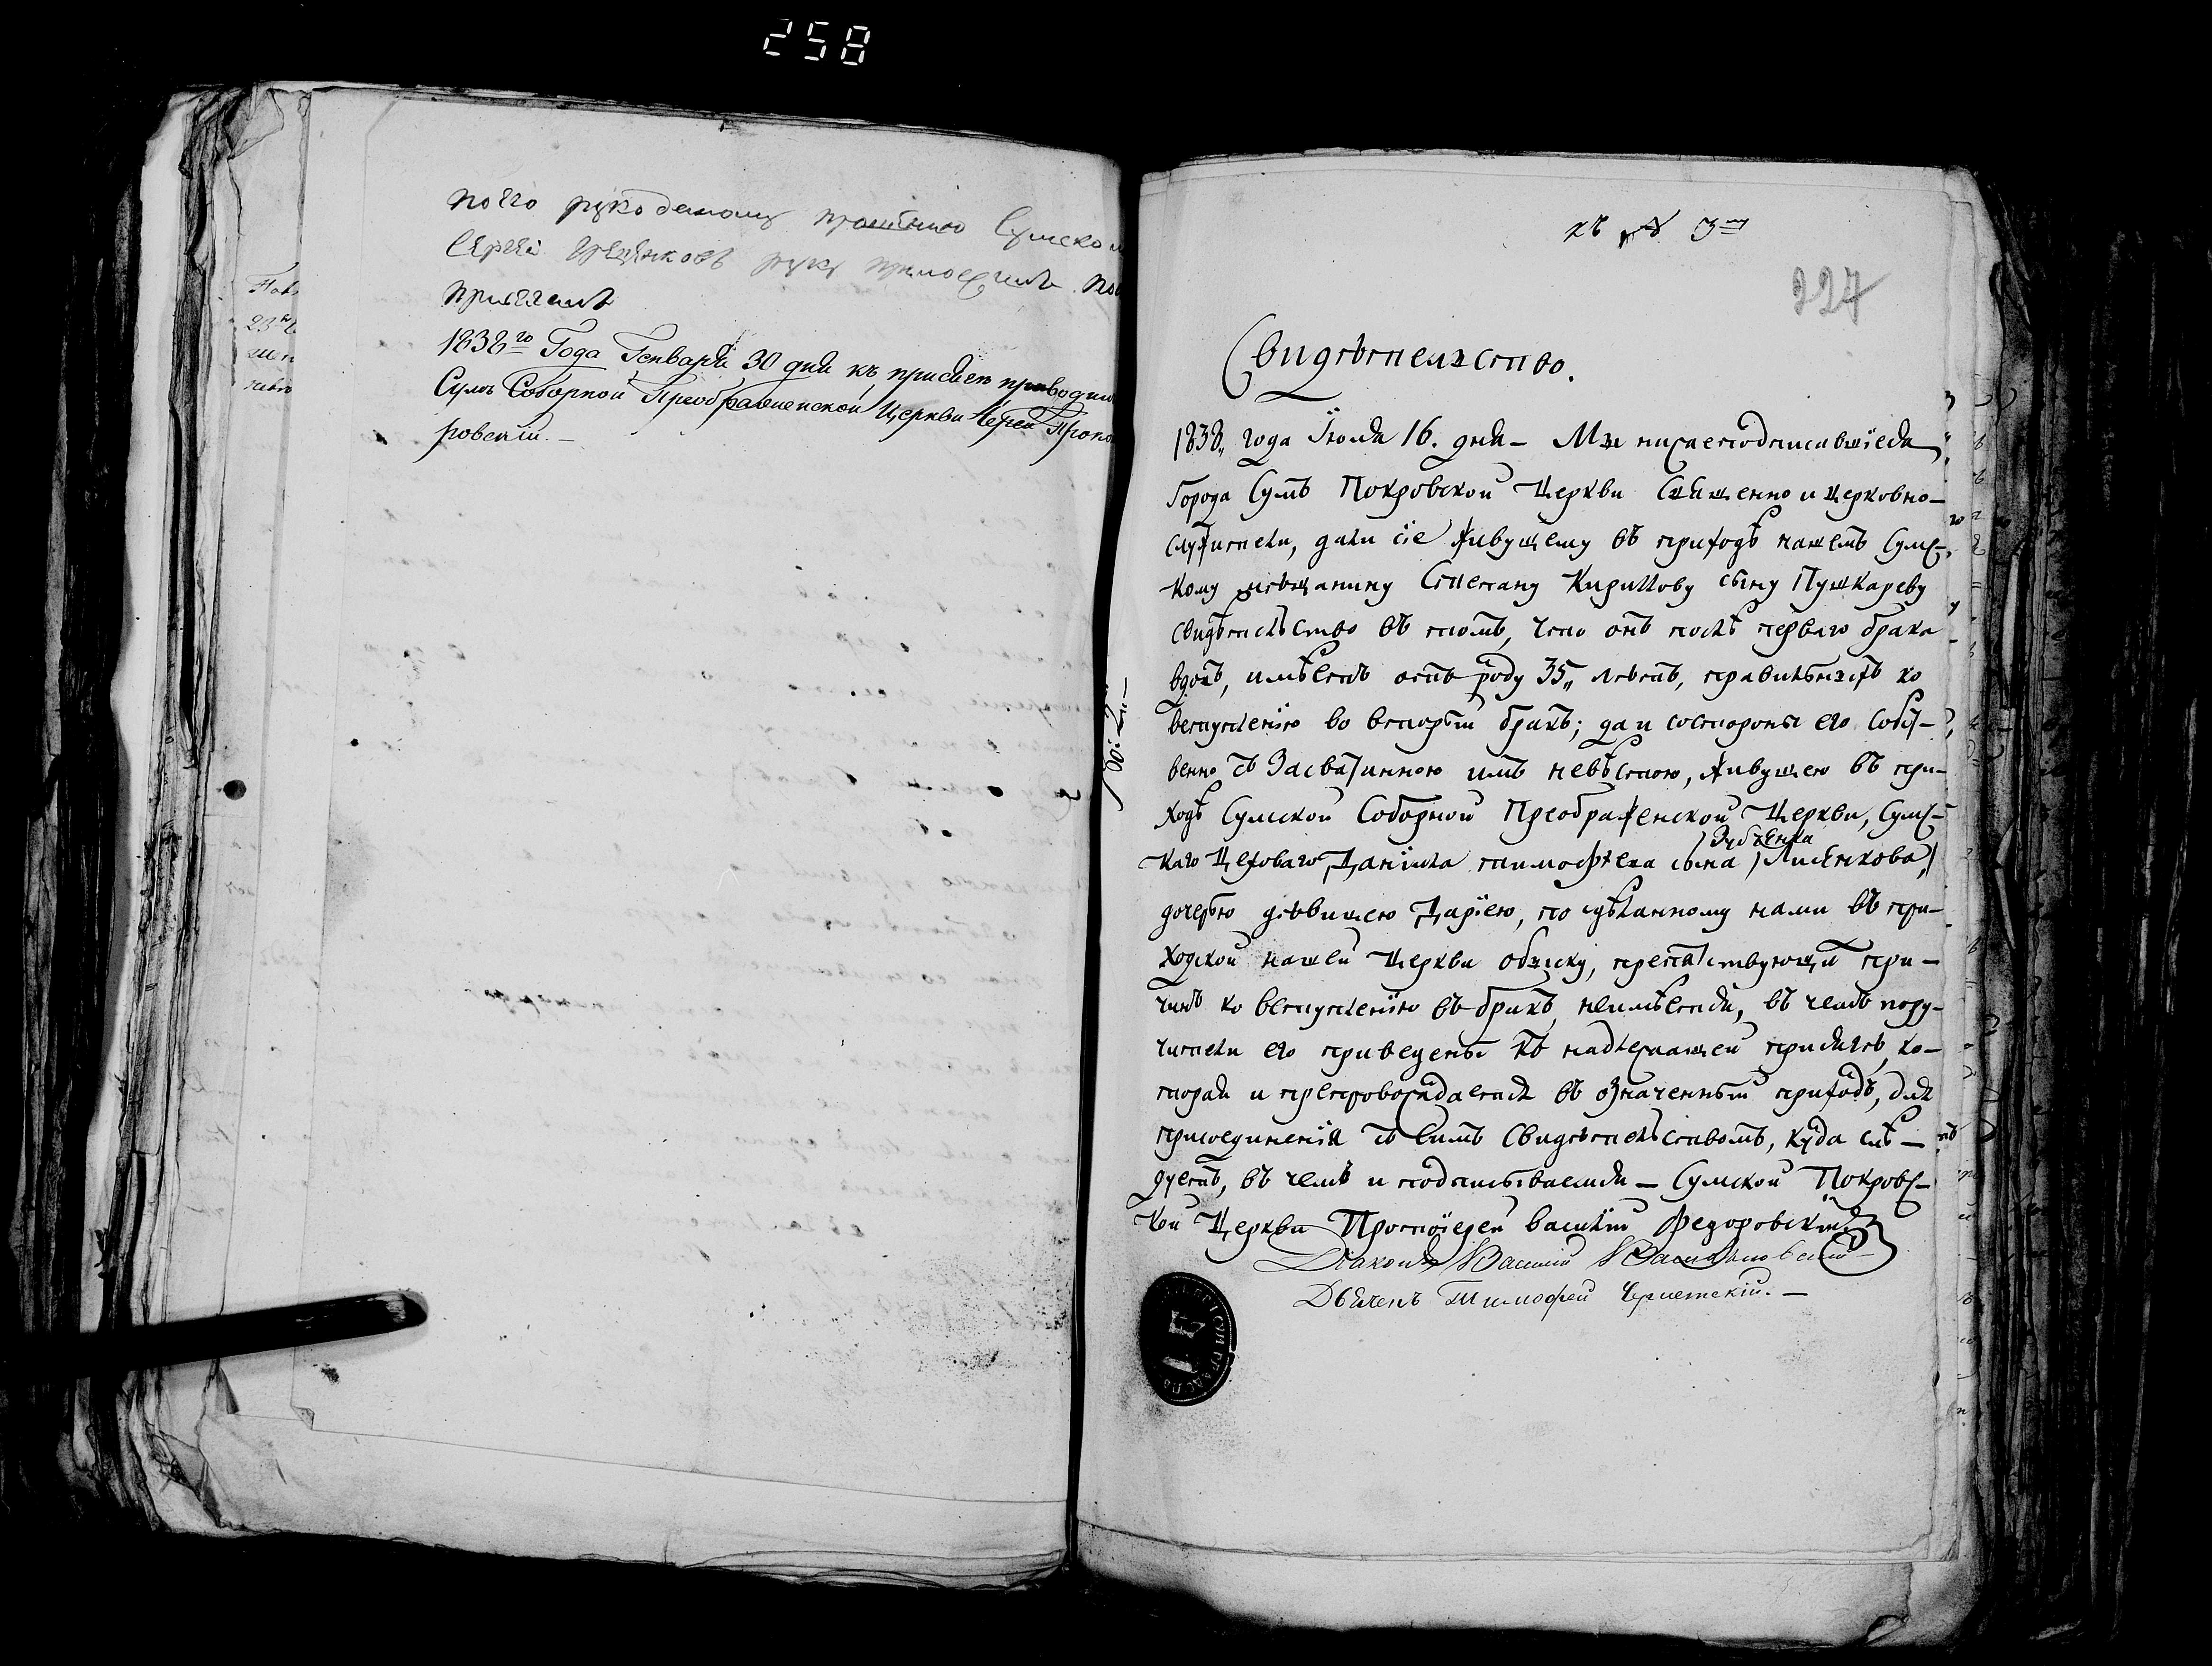 258
поего рукоданому прошению Сумском
Сергей руку приложилъ
присягалъ
1838го Года Генваря 30 дня къ присяги приводил
Сумъ Соборной Преображенской Церкви Іерей Проко
ровскій. —
къ № 3му
227
Свидѣтельство.
1838„ года Іюля 16. дня — Мы нижеподписавшіеся
города Сумъ Покровской Церкви Священно и церковно-
служители, дали сіе живущему въ приходѣ нашемъ Сумс-
кому мѣщанину Степану Кирилову сыну Пушкареву
свидѣтельство въ томъ, что онъ послѣ перваго брака
вдовъ, имѣетъ отъ роду 35„ лѣтъ, правильныхъ ко
вступленію во вторый бракъ; да и состороны его собст-
венно съ засватанною имъ невѣстою, живущею въ при-
ходѣ Сумской Соборной Преображенской Церкви, Сумс-
Зубченка
каго Цеховаго Даніила тимофѣева сына Лисенкова,
дочерью дѣвицею Даріею, по сдѣланному нами въ при-
ходской нашей Церкви обыску, препятствующихъ при-
чинъ ко вступленію въ бракъ неимѣется, въ чемъ пору-
чители его приведены къ надлежащей присягѣ, ко-
торая и препровождается въ означенный приходъ, для
присоединенія съ симъ Свидѣтельствомъ, куда слѣ-
дуетъ, въ чемъ и подписываемся — Сумской Покровс-
кой Церкви Протоіерей Василій Федоровскій
Діаконъ Василій
Дьячекъ Тимофей Чернетскій. —